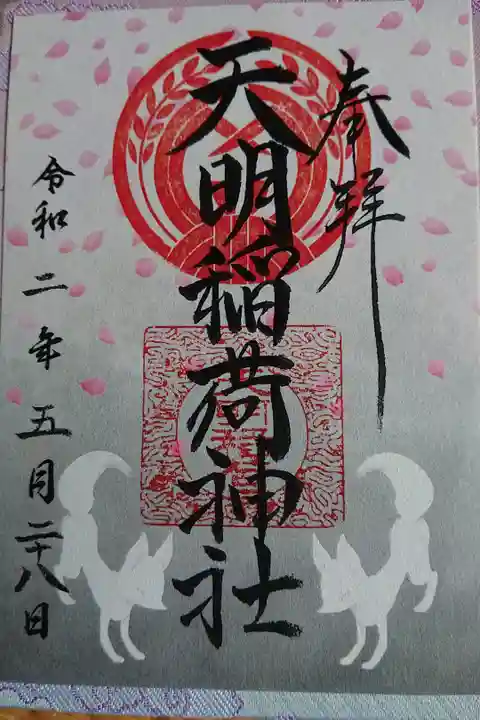 奉拝
天明稲荷神社
令和二年五月二十八日